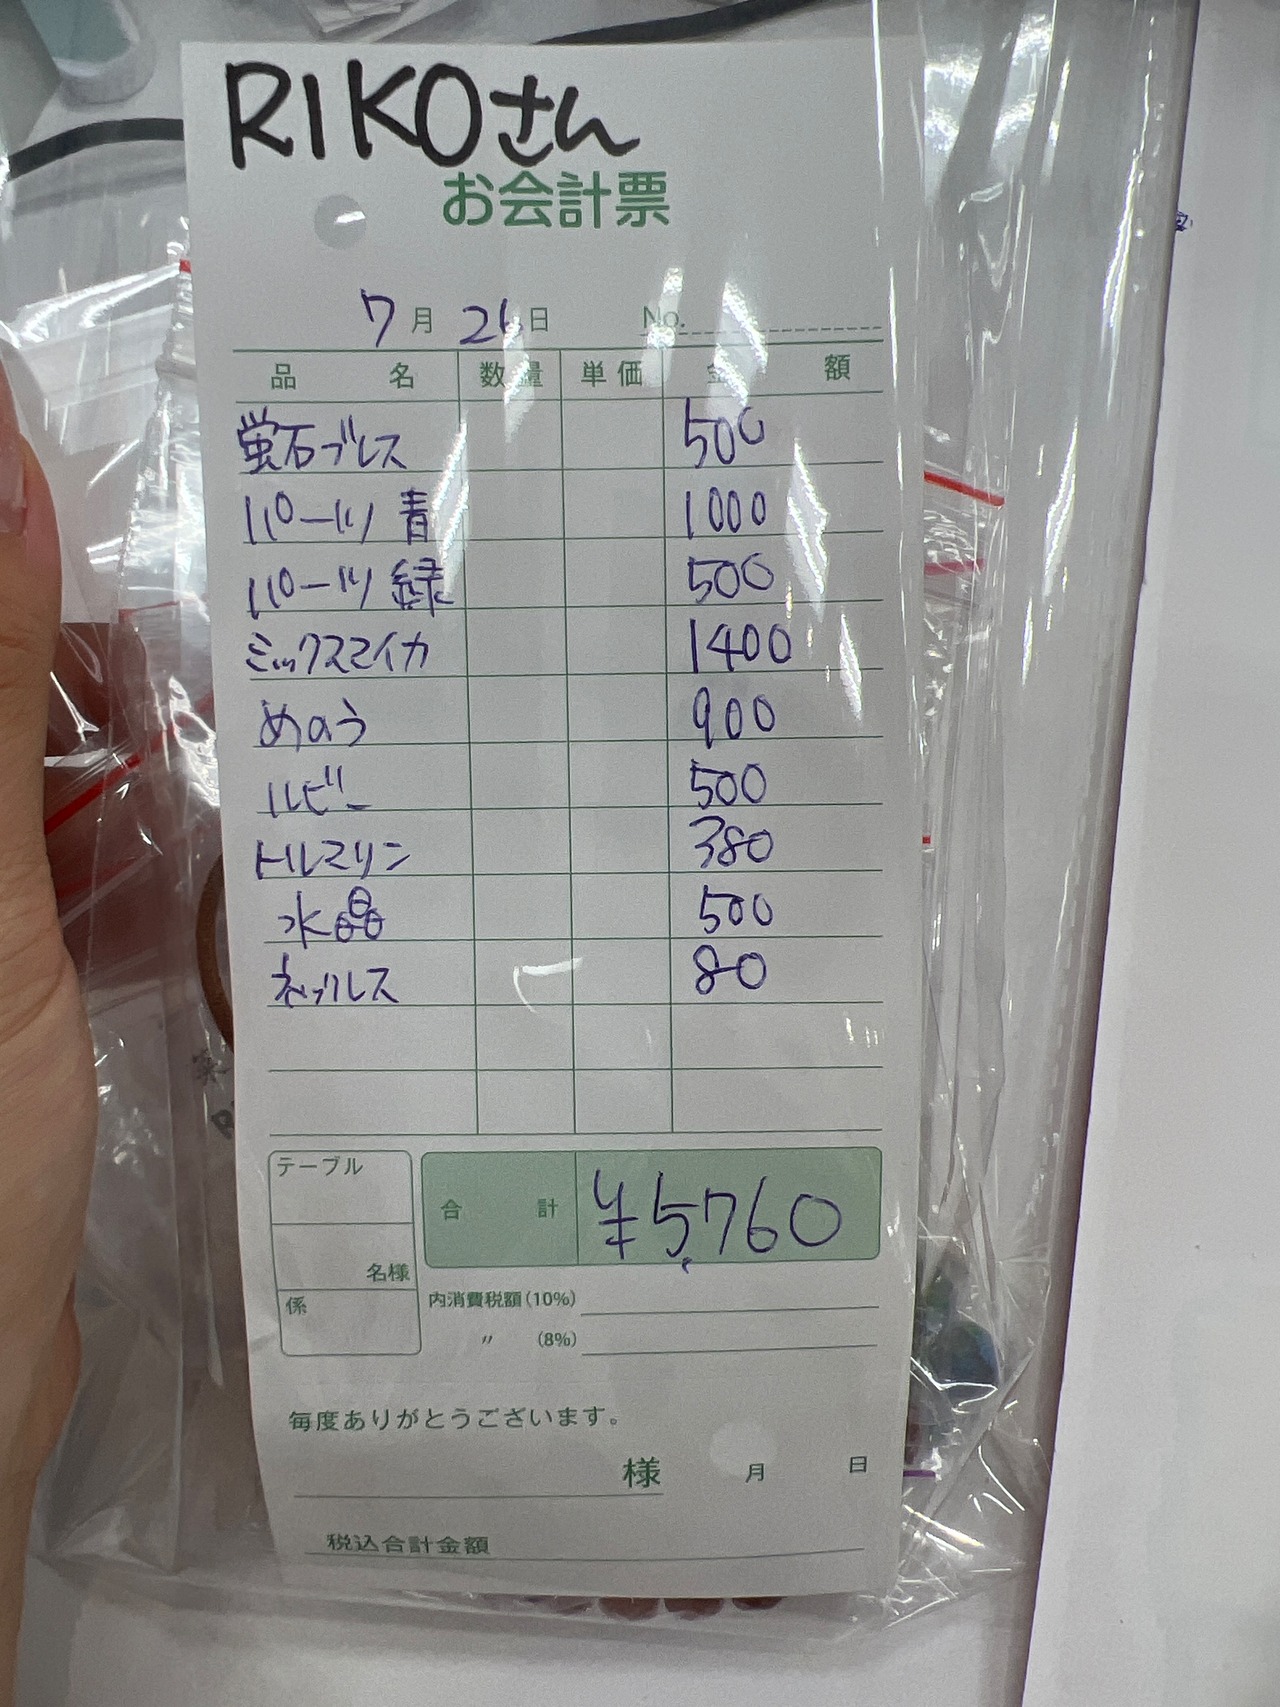 RIKOさん
お会計票
7月 26日 No.
品名 数量 単価 金額
蛍石ブレス 500
パーツ 青 1000
パーツ 緑 500
ミックスマイカ 1400
めのう 900
ルビー 500
トルマリン 380
水晶 500
ネックレス 80
テーブル
合計 ¥5,760
名様
係
内消費税額(10%)
〃 (8%)
毎度ありがとうございます。
様 月 日
税込合計金額